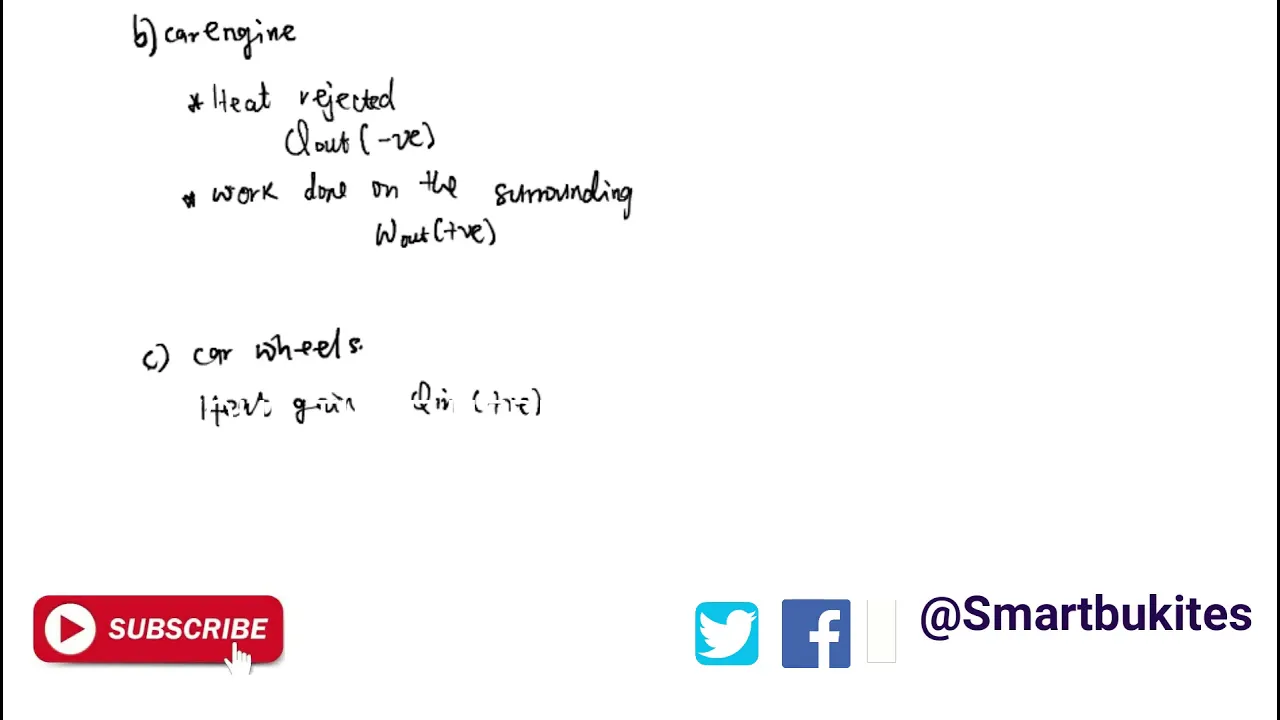 b) car engine
* Heat rejected
Qout (-ve)
* work done on the surrounding
Wout (+ve)
c) car wheels.
Heat gain Qin (+ve)
SUBSCRIBE
@Smartbukites